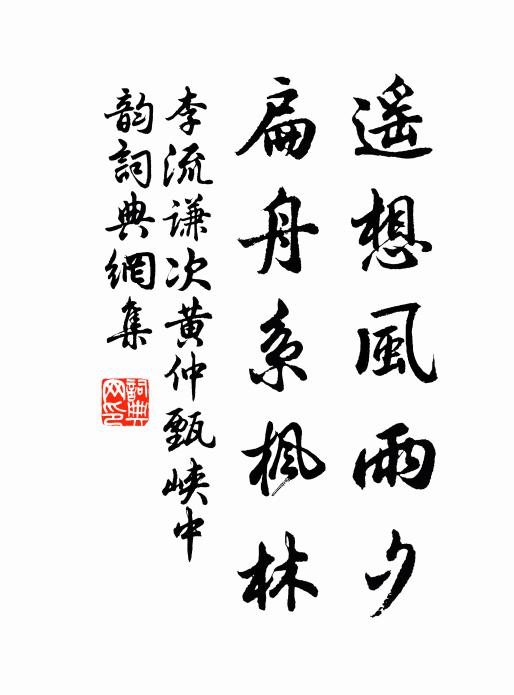 遥想風雨夕
扁舟系楓林
李流谦次黄仲甄峡中
韵詞典網集
詞典
网印